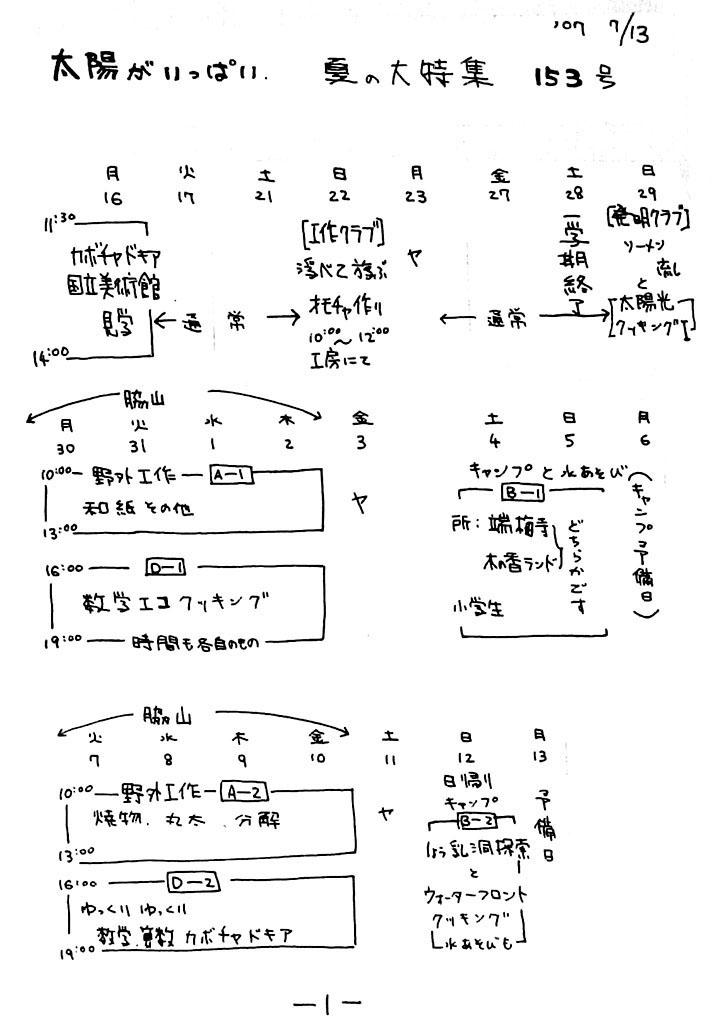 '07 7/13
太陽がいっぱい. 夏の大特集 153号
月 火 土 日 月 金 土 日
16 17 21 22 23 27 28 29
11:30
カボチャドキア
国立美術館
見学
14:00
← 通常 →
[工作クラブ]
浮べて遊ぶ
オモチャ作り
10:00〜12:00
工房にて
ヤ
← 通常 →
一学期終了
[発明クラブ]
ソーメン
流し
と
[太陽光
クッキング]
脇山
月 火 水 木 金 土 日 月
30 31 1 2 3 4 5 6
10:00 野外工作 A-1
和紙その他
13:00
16:00 D-1
数学エコクッキング
19:00 時間も各自のもの
ヤ
キャンプと水あそび
B-1
所:端梅寺
木の香ランド
どちらかです
小学生
(キャンプ予備日)
脇山
火 水 木 金 土 日 月
7 8 9 10 11 12 13
10:00 野外工作 A-2
焼物、丸太、分解
13:00
16:00 D-2
ゆっくりゆっくり
数学.算数 カボチャドキア
19:00
ヤ
日帰り
キャンプ
B-2
しょう乳洞探索
と
ウォーターフロント
クッキング
水あそびも
予備日
—1—